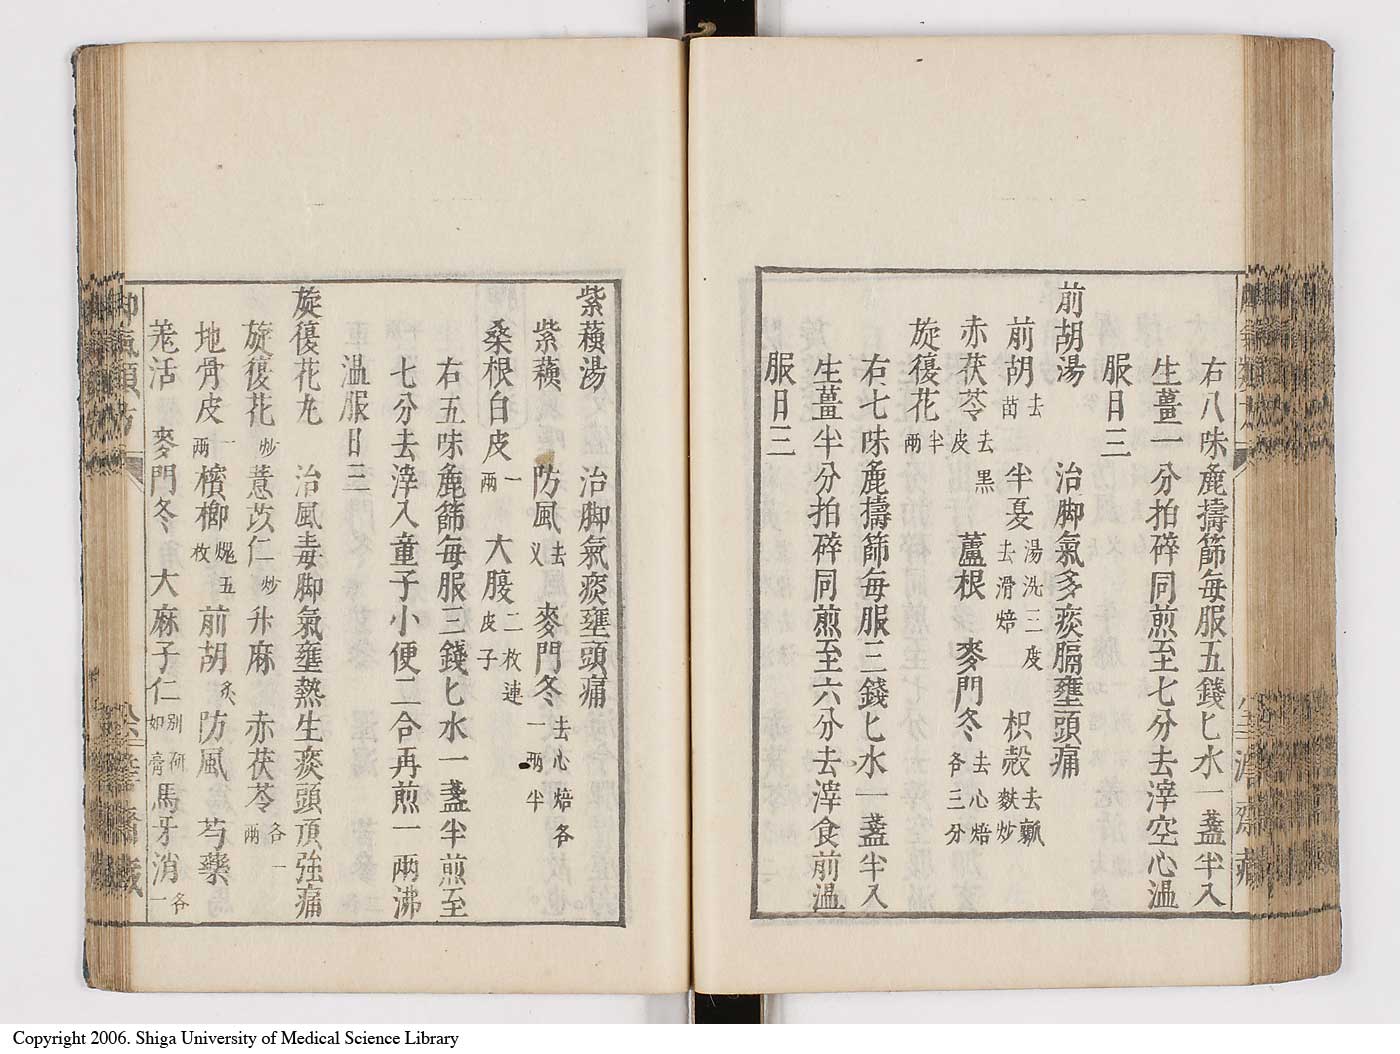 右八味麄擣篩每服五錢匕水一盞半入
生薑一分拍碎同煎至七分去滓空心温
服日三
前胡湯　治脚氣多痰膈壅頭痛
前胡去苗　半夏湯洗二度去滑焙　枳殻去瓤麩炒
赤茯苓去黑皮　蘆根　麥門冬去心焙各三分
旋復花半兩
右七味麄擣篩每服三錢匕水一盞半入
生薑半分拍碎同煎至六分去滓食前温
服日三
紫蘇湯　治脚氣痰壅頭痛
紫蘇　防風去叉　麥門冬去心焙各一兩半
桑根白皮一兩　大腹二枚連皮子
右五味麄篩每服三錢匕水一盞半煎至
七分去滓入童子小便二合再煎一兩沸
温服日三
旋復花丸　治風毒脚氣壅熱生痰頭項強痛
旋復花炒　薏苡仁炒　升麻　赤茯苓各一兩
地骨皮一兩　檳榔煨五枚　前胡炙　防風　芍藥
羗活　麥門冬　大麻子仁别研如膏　馬牙消各一
脚氣類方
Copyright 2006. Shiga University of Medical Science Library